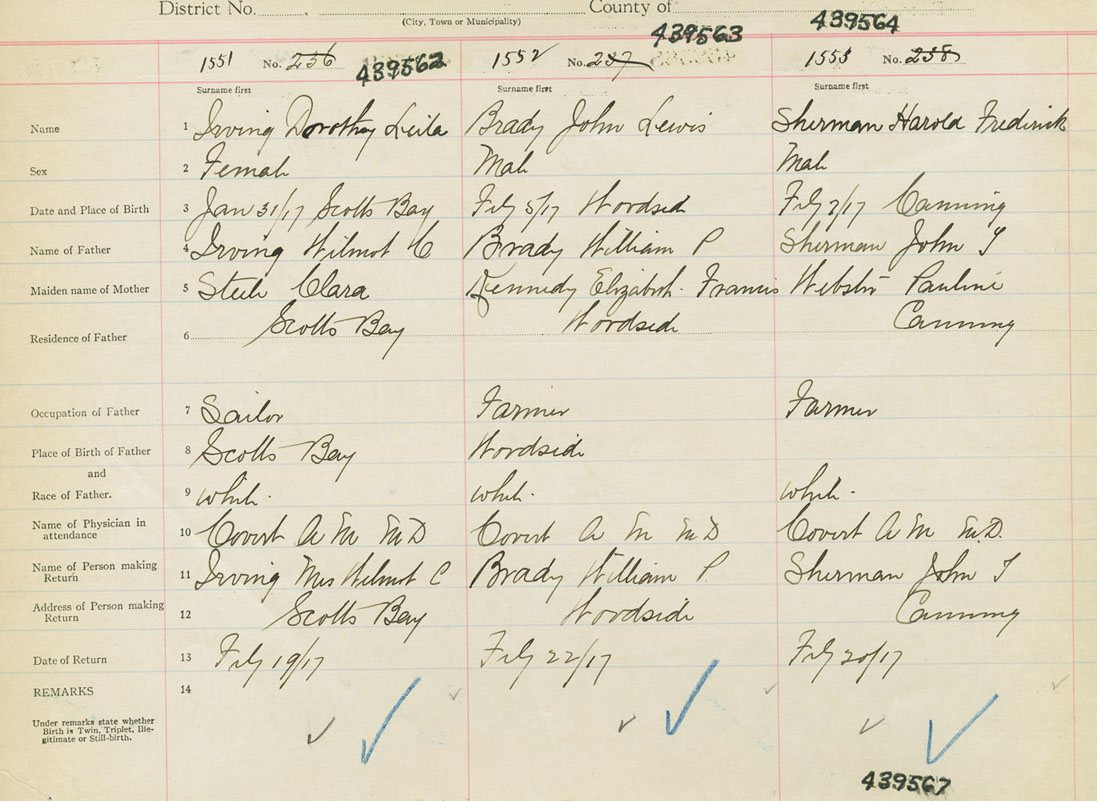 District No. County of
(City, Town or Municipality)
439563 439564
1551 No. 236 439562 1552 No. 237 1553 No. 238
Surname first Surname first Surname first
Name 1 Irving Dorothy Leila Brady John Lewis Sherman Harold Frederick
Sex 2 Female Male Male
Date and Place of Birth 3 Jan 31/17 Scotts Bay Feby 5/17 Woodside Feby 7/17 Canning
Name of Father 4 Irving Wilmot C Brady William P Sherman John T
Maiden name of Mother 5 Steele Clara Kennedy Elizabeth Francis Webster Pauline
Residence of Father 6 Scotts Bay Woodside Canning
Occupation of Father 7 Sailor Farmer Farmer
Place of Birth of Father 8 Scotts Bay Woodside
and
Race of Father. 9 white. white. white.
Name of Physician in attendance 10 Covert A M M D Covert A M M D Covert A M M.D.
Name of Person making Return 11 Irving Mrs Wilmot C Brady William P. Sherman John T
Address of Person making Return 12 Scotts Bay Woodside Canning
Date of Return 13 Feby 19/17 Feby 22/17 Feby 20/17
REMARKS 14
Under remarks state whether
Birth is Twin, Triplet, Ille-
gitimate or Still-birth.
439567